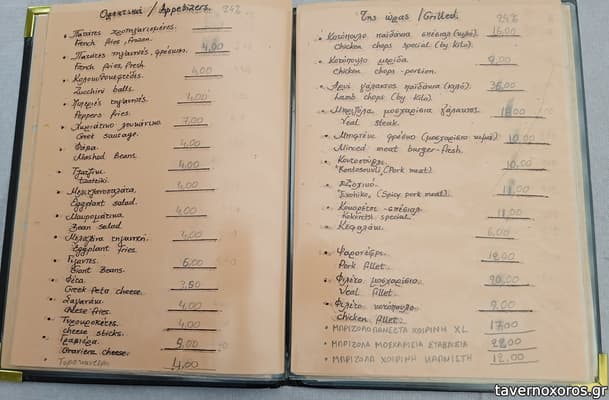 Ορεκτικά / Appetizers. 24%
• Πατάτες προτηγανισμένες.
French fries, frozen.
• Πατάτες τηγανητές, φρέσκιες. 4,00
French fries, fresh
• Κολοκυθοκεφτέδες. 4,00
Zucchini balls.
• Πιπεριές τηγανητές. 4,00
Peppers fries.
• Χωριάτικο λουκάνικο. 7,00
Greek sausage.
• Φάβα. 4,00
Mashed Beans.
• Τζατζίκι. 4,00
Tzatziki.
• Μελιτζανοσαλάτα. 4,00
Eggplant salad.
• Μαυρομάτικα. 4,00
Bean salad.
• Μελιτζάνα τηγανιτή. 4,00
Eggplant fries.
• Γίγαντες. 5,00
Giant Beans.
• Φέτα. 3,50
Greek Feta cheese.
• Σαγανάκι. 4,00
cheese fries.
• Τυροκροκέτες. 4,00
cheese sticks.
• Γραβιέρα. 5,00
Graviera cheese.
• Τυροκαυτερή. 4,00
Της ώρας / Grilled. 24%
• Κοτόπουλο παϊδάκια σπέσιαλ (κιλό). 16,00
chicken chops special (by kilo).
• Κοτόπουλο μερίδα. 9,00
chicken chops -portion.
• Αρνί γάλακτος παϊδάκια (κιλό). 36,00
Lamb chops (by kilo).
• Μπριζόλα μοσχαρίσια γάλακτος.
Veal steak.
• Μπιφτέκι φρέσκο (μοσχαρίσιο κιμά). 10,00
Minced meat burger-fresh.
• Κοντοσούβλι. 10,00
Kontosouvli (Pork meat).
• Εξοχικό. 11,00
Exohiko, (Spicy pork meat).
• Κοκορέτσι -σπέσιαλ 11,00
Kokoretsi special.
• Κεφαλάκι. 6,00
• Ψαρονέφρι.
Pork fillet.
• Φιλέτο μοσχαρίσιο.
Veal fillet.
• Φιλέτο κοτόπουλο. 9,00
Chicken fillet.
• ΜΠΡΙΖΟΛΑ ΠΑΝΣΕΤΑ ΧΟΙΡΙΝΗ XL 17,00
• ΜΠΡΙΖΟΛΑ ΜΟΣΧΑΡΙΣΙΑ ΣΤΑΒΛΙΣΙΑ
• ΜΠΡΙΖΟΛΑ ΧΟΙΡΙΝΗ ΚΑΠΝΙΣΤΗ 12,00
tavernoxoros.gr